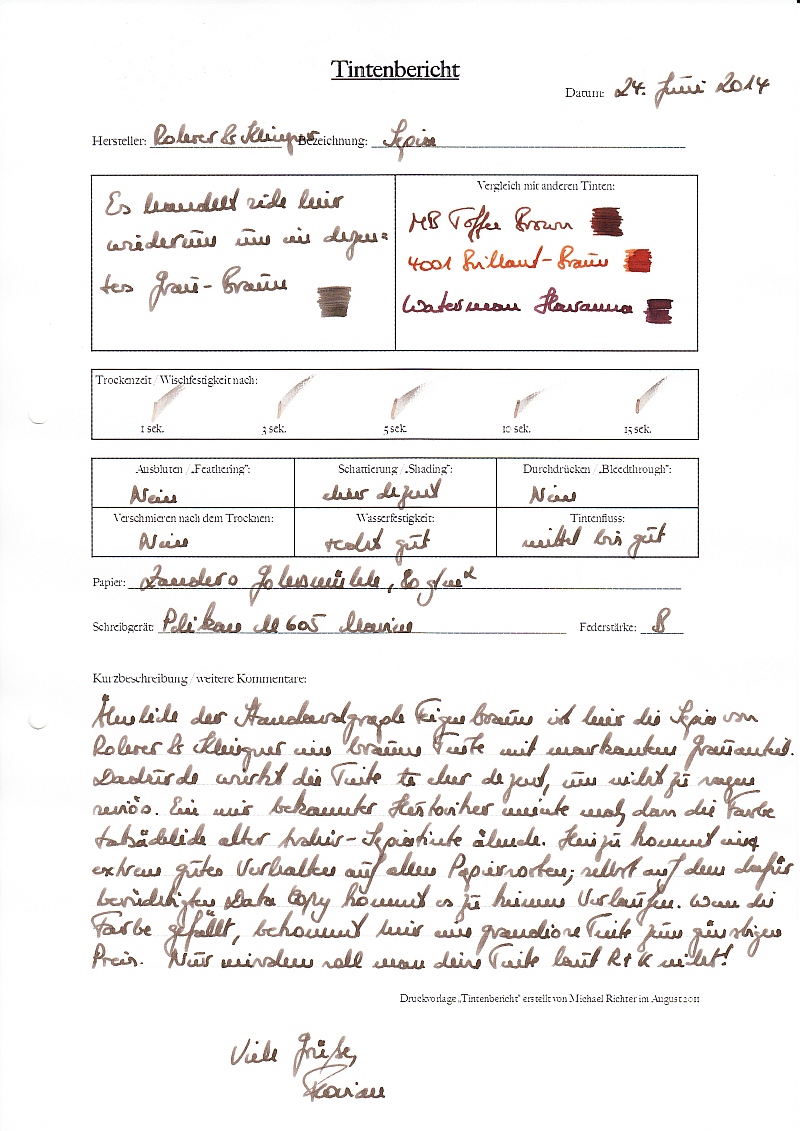 Tintenbericht
Datum: 24. Juni 2014
Hersteller: Rohrer & Klingner Bezeichnung: Sepia
Es handelt sich hier
wiederum um ein dezen=
tes Grau-Braun
Vergleich mit anderen Tinten:
MB Toffee Brown
4001 Brillant-Braun
Waterman Havanna
Trockenzeit / Wischfestigkeit nach:
1 sek. 3 sek. 5 sek. 10 sek. 15 sek.
Ausbluten / „Feathering": Schattierung / „Shading": Durchdrücken / „Bleedthrough":
Nein eher dezent Nein
Verschmieren nach dem Trocknen: Wasserfestigkeit: Tintenfluss:
Nein recht gut mittel bis gut
Papier: Zanders Gohrsmühle, 80 g/m²
Schreibgerät: Pelikan M 605 Marine Federstärke: B
Kurzbeschreibung / weitere Kommentare:
Ähnlich der Standardgraph Feigenbraun ist hier die Sepia von
Rohrer & Klingner eine braune Tinte mit markantem Grauanteil.
Dadurch wirkt die Tinte eher dezent, um nicht zu sagen
seriös. Ein mir bekannter Historiker meinte mal, dass die Farbe
tatsächlich alter Sepiatinte ähnele. Hinzu kommt ein
extrem gutes Verhalten auf allen Papiersorten; selbst auf dem dafür
berüchtigten Data Copy kommt es zu keinem Verlaufen. Wem die
Farbe gefällt, bekommt hier eine grandiose Tinte zum günstigen
Preis. Nur mischen soll man diese Tinte laut R+K nicht!
Druckvorlage „Tintenbericht" erstellt von Michael Richter im August 2011
Viele Grüße,
Florian